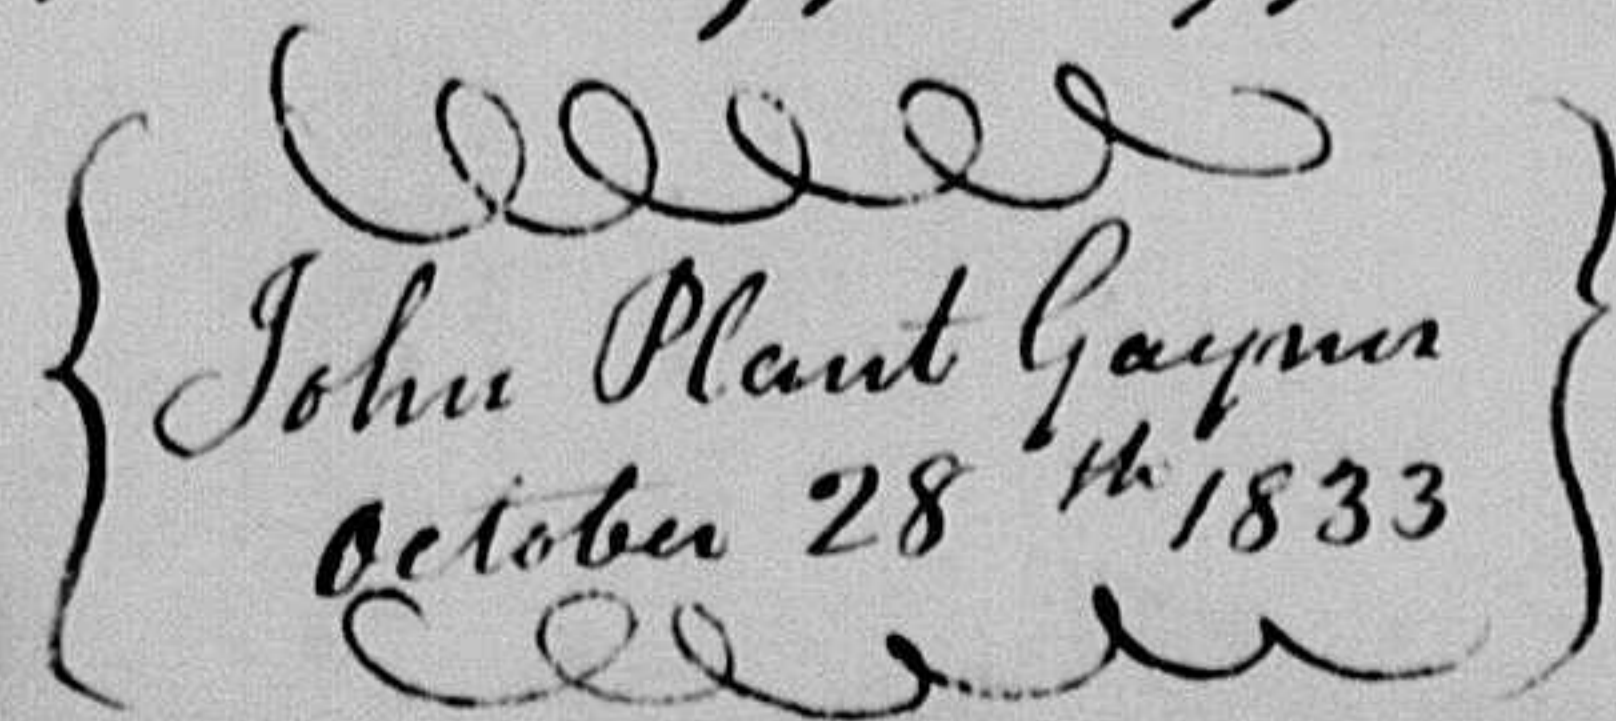 John Plant Gayner
October 28th 1833